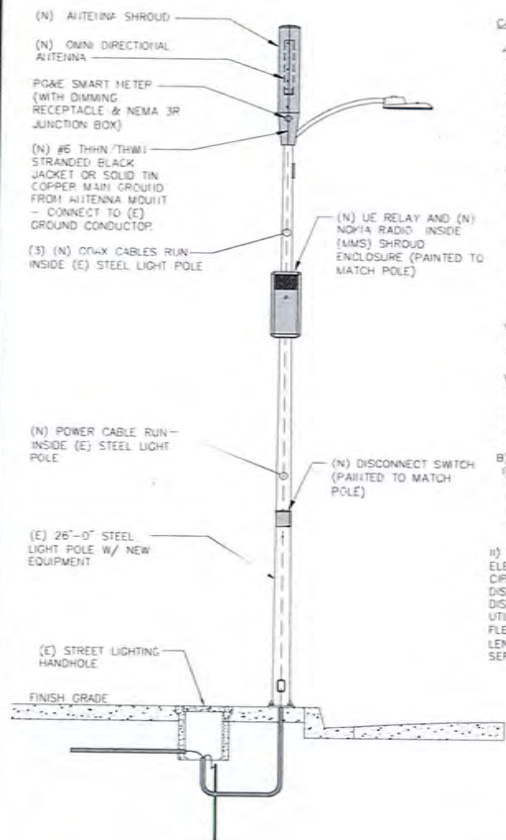 (N) ANTENNA SHROUD
(N) OMNI DIRECTIONAL
ANTENNA
PG&E SMART METER
(WITH DIMMING
RECEPTACLE & NEMA 3R
JUNCTION BOX)
(N) #6 THHN/THWN
STRANDED BLACK
JACKET OR SOLID TIN
COPPER MAIN GROUND
FROM ANTENNA MOUNT
- CONNECT TO (E)
GROUND CONDUCTOR
(3) (N) COAX CABLES RUN
INSIDE (E) STEEL LIGHT POLE
(N) UE RELAY AND (N)
NOKIA RADIO INSIDE
(MMS) SHROUD
ENCLOSURE (PAINTED TO
MATCH POLE)
(N) POWER CABLE RUN
INSIDE (E) STEEL LIGHT
POLE
(N) DISCONNECT SWITCH
(PAINTED TO MATCH
POLE)
(E) 26'-0" STEEL
LIGHT POLE W/ NEW
EQUIPMENT
(E) STREET LIGHTING
HANDHOLE
FINISH GRADE
B)
ELE
CIR
DIS
DIS
UTIL
FLE
LEN
SER